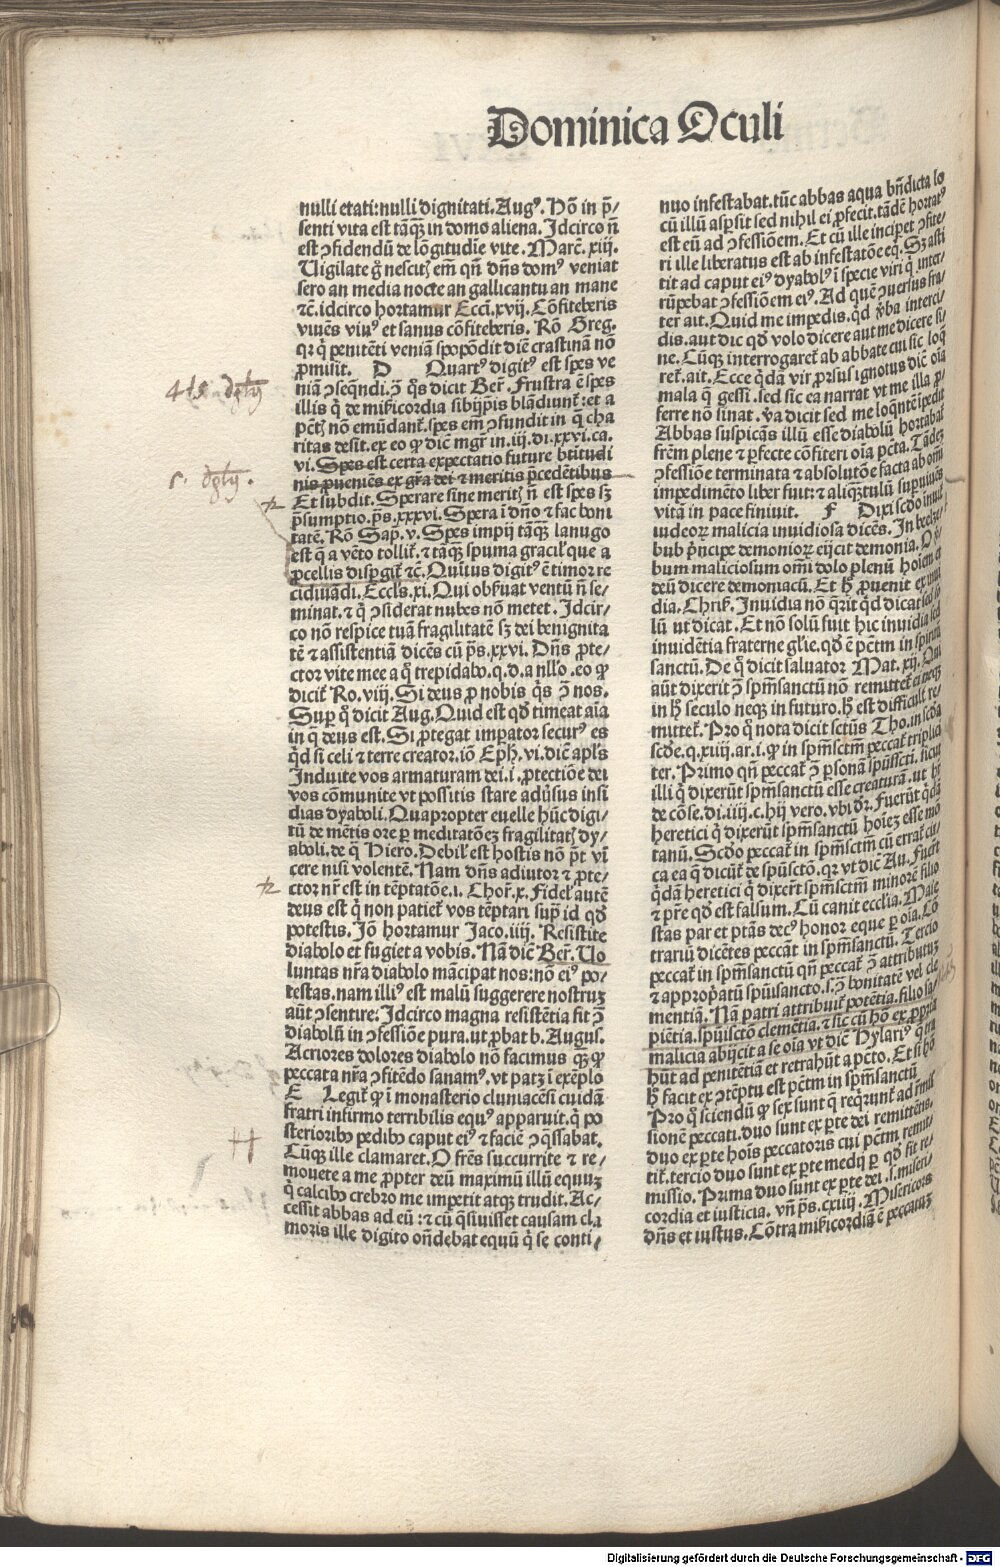 Dominica Oculi
nulli etati: nulli dignitati. Augꝰ. Hō in p̄/
senti vita est tāq̄ȝ in domo aliena. Idcirco n̄
est ꝯfidendū de lōgitudīe vite. Marc̄. xiij.
Uigilate ḡ nescitꝭ em̄ qn̄ dn̄s domꝰ veniat
sero an media nocte an gallicantu an mane
⁊c̄. idcirco hortamur Eccn̄. xvij. Cōfiteberis
viuēs viuꝰ et sanus cōfiteberis. Rō Greg.
qꝛ q̇ penitēti veniā spopōdit diē crastinā nō
ꝓmisit. D Quartꝰ digitꝰ est spes ve
niā ꝯseq̄ndi. ꝯ̄ q̊s dicit Ber̄. Frustra ē spes
illis q̇ de mīcordia sibijp̄is blādiunt̄: et a
pctꝭ nō emūdant̄. spes em̄ ꝯfundit in q̄ cha
ritas desīt. ex eo ꝙ diē mgr̄ in. iij. di. xxvi. ca.
vi. Spes est certa expectatio future btītudi
nis ꝓueniēs ex gr̄a dei ⁊ meritis p̄cedētibus
Et subdit. Sperare sine meritꝭ n̄ est spes sȝ
p̄sumptio. p̄s. xxxvi. Spera ī dn̄o ⁊ fac boni
tatē. Rō Sap̄. v. Spes impij tāq̄ȝ lanugo
est q̄ a vēto tollit̄. ⁊ tāq̄ȝ spuma gracil̄ que a
ꝓcellis disꝑgit̄ ⁊c̄. Quītus digitꝰ ē timor re
cidiuādi. Eccls. xi. Qui obẜuat ventū n̄ se/
minat. ⁊ q̇ ꝯsiderat nubes nō metet. Idcir/
co nō respice tuā fragilitatē sȝ dei benignita
tē ⁊ assistentiā dicēs cū p̄s. xxvi. Dn̄s ꝓte/
ctor vite mee a q̊ trepidabo. q. d. a nllo. eo ꝙ
dicit̄ Ro. viij. Si deus ꝓ nobis q̇s ꝯ̄ nos.
Suꝑ q̊ dicit Aug. Quid est qd̄ timeat aīa
in q̄ deus est. Si ꝓtegat imꝑator securꝰ es
q̊d si celi ⁊ terre creator. iō Eph̄. vi. diē apl̄s
Induite vos armaturam dei. i. ꝓtectiōe dei
vos cōmunite vt possitis stare aduersus insi
dias dyaboli. Quapropter euelle hūc digi/
tū de mētis ore ꝑ meditatōeȝ fragilitatꝭ dy/
aboli. de q̊ Hiero. Debil̄ est hostis nō p̄t vī
cere nisi volentē. Nam dn̄s adiutor ⁊ ꝓte/
ctor nr̄ est in tēptatōe. i. Chor̄. x. Fidel̄ autē
deus est q̇ non patiet̄ vos tēptari supͣ id qd̄
potestis. Iō hortamur Iaco. iiij. Resistite
diabolo et fugiet a vobis. Nā diē Ber̄. Uo
luntas nr̄a diabolo mācipat nos: nō eiꝰ po/
testas. nam illiꝰ est malū suggerere nostruȝ
aūt ꝯsentire: Idcirco magna resistētia fit ꝯ̄
diabolū in ꝯfessiōe pura. vt ꝓbat b. Augus.
Acriores dolores diabolo nō facimus qȝ ꝙ
peccata nr̄a ꝯfitēdo sanamꝰ. vt patȝ ī exēplo
E Legit̄ ꝙ ī monasterio cluniacēsi cuidā
fratri infirmo terribilis equꝰ apparuit. q̇ po
sterioribꝰ pedibꝰ caput eiꝰ ⁊ faciē ꝯq̄ssabat.
Cūqȝ ille clamaret. O fr̄es succurrite ⁊ re/
mouete a me ꝓpter deū maximū illū equuȝ
q̇ calcibꝰ crebro me impetit atqȝ trudit. Ac/
cessit abbas ad eū: ⁊ cū q̄siuisset causam cla
moris ille digito on̄debat equū q̇ se conti/
nuo infestabat. tūc abbas aqua bn̄dicta lo
cū illū aspsit sed nihil ei ꝓfecit. tādē hortatꝰ
est eū ad ꝯfessiōem. Et cū ille inciꝑet ꝯfite/
ri ille liberatus est ab infestatōe eq̇. Sȝ asti
tit ad caput eiꝰ dyabolꝰ ī specie viri q̇ inter/
rūpebat ꝯfessiōem eiꝰ. Ad quē ꝯuersus fra/
ter ait. Quid me impedis. q̊d v̄ba interci/
dis. aut dic qd̄ volo dicere aut me dicere si/
ne. Cūqȝ interrogaret̄ ab abbate cui sic loq̄
ret̄. ait. Ecce q̊dā vir ꝓrsus ignotus diē oīa
mala q̄ gessi. sed sic ea narrat vt me illa ꝓ/
ferre nō sinat. v̄a dicit sed me loq̄ntē īpedit
Abbas suspicās illū esse diabolū hortabat̄
fr̄em plene ⁊ ꝑfecte cōfiteri oīa pctā. Tādeȝ
ꝯfessiōe terminata ⁊ absolutōe facta ab omī
impedimēto liber fuit: ⁊ aliqȝtulū suꝑuiuēs
vitā in pace finiuit. F Dixi scd̄o inuīt
iudeoꝝ malicia inuidiosa dicēs. In beelȝe/
bub p̄ncipe demonioꝝ eijcit demonia. O
bum maliciosum omī dolo plenū hoīem et
deū dicere demoniacū. Et h̄ ꝓuenit ex inui
dia. Chris̄. Inuidia nō q̄rit q̊d dicat sed so
lū ut dicat. Et nō solū fuit hic inuidia sed
inuidētia fraterne gl̄ie. qd̄ ē pctm̄ in spiritū
sanctū. De q̊ dicit saluator Mat. xij. Qui
aūt dixerit ꝯ̄ spm̄sanctū nō remittet̄ ei neqȝ
in h̄ seculo neqȝ in futuro. h̄ est difficult̄ re/
mittet̄. Pro q̊ nota dicit sctūs Tho. in scd̄a
scd̄e. q. xiiij. ar. i. ꝙ in spm̄sctm̄ peccat̄ triplici
ter. Primo qn̄ peccat̄ ꝯ̄ ꝑsonā spūsscti. sicut
illi q̇ dixerūt spm̄sanctū esse creaturā. ut h̄
de cōse. di. iiij. c. hij vero. vbi dr̄. Fuerūt q̇dā
heretici q̇ dixerūt spm̄sanctū hoīeȝ esse mō
tanū. Scd̄o peccat̄ in spm̄sctm̄ cū errat̄ cir/
ca ea q̄ dicūt̄ de spūsctō. qꝛ vt diē Au. Fuer̄t
q̇dā heretici q̇ dixer̄t spm̄sctm̄ minorē filio
⁊ pr̄e qd̄ est falsum. Cū canit ecclīa. Maie
stas par et ptās decꝰ honor eque ꝑ oīa. Cō
trariū dicētes peccāt in spm̄sanctū. Tercio
peccat̄ in spm̄sanctū qn̄ peccat̄ ꝯ̄ attributuȝ
⁊ appropͣtū spūisancto. s. ꝯ̄ bonitatē vel cle
mentiā. Nā patri attribuit̄ potētia. filio sa/
piētia. spūisctō clemētia. ⁊ sic cū hō ex ꝓpria
malicia abijcit a se oīa vt diē Hylariꝰ q̄ tra
hūt ad penitētiā et retrahūt a pctō. Et si hō
h̄ facit ex ꝯtēptu est pctm̄ in spm̄sanctū
Pro q̊ sciendū ꝙ sex sunt q̄ req̄runt̄ ad remis
sionē peccati. duo sunt ex ꝑte dei remittētis.
duo ex ꝑte hoīs peccatoris cui pctm̄ remit/
tit̄. tercio duo sunt ex ꝑte medij ꝑ qd̄ fit re/
missio. Prima duo sunt ex ꝑte dei. s. miseri/
cordia et iusticia. vn̄ p̄s. cxiiij. Misericors
dn̄s et iustus. Cōtra mīcordiā ē peccatuȝ
Digitalisierung gefördert durch die Deutsche Forschungsgemeinschaft - DFG